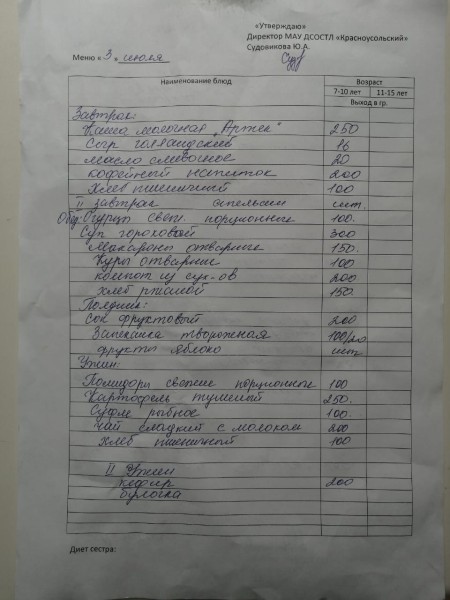 «Утверждаю»
Директор МАУ ДСОСТЛ «Красноусольский»
Судовикова Ю.А.
Меню « 3 » июля
Наименование блюд Возраст
7-10 лет 11-15 лет
Выход в гр.
Завтрак:
Каша молочная "Артек" 250
Сыр голландский 16
масло сливочное 20
кофейный напиток 200
Хлеб пшеничный 100
II завтрак апельсин шт.
Обед: Огурцы свеж. порционные 100.
Суп гороховой 300
Макароны отварные 150.
Куры отварные 100
компот из сух-ов 200
хлеб ржаной 150.
Полдник:
Сок фруктовой 200
Запеканка творожная 100/20
фрукты яблоко шт.
Ужин:
Помидоры свежие порционные 100
Картофель тушеный 250.
Суфле рыбное 100.
чай сладкий с молоком 200
хлеб пшеничный 100
II Ужин
кефир 200
булочка
Диет сестра: